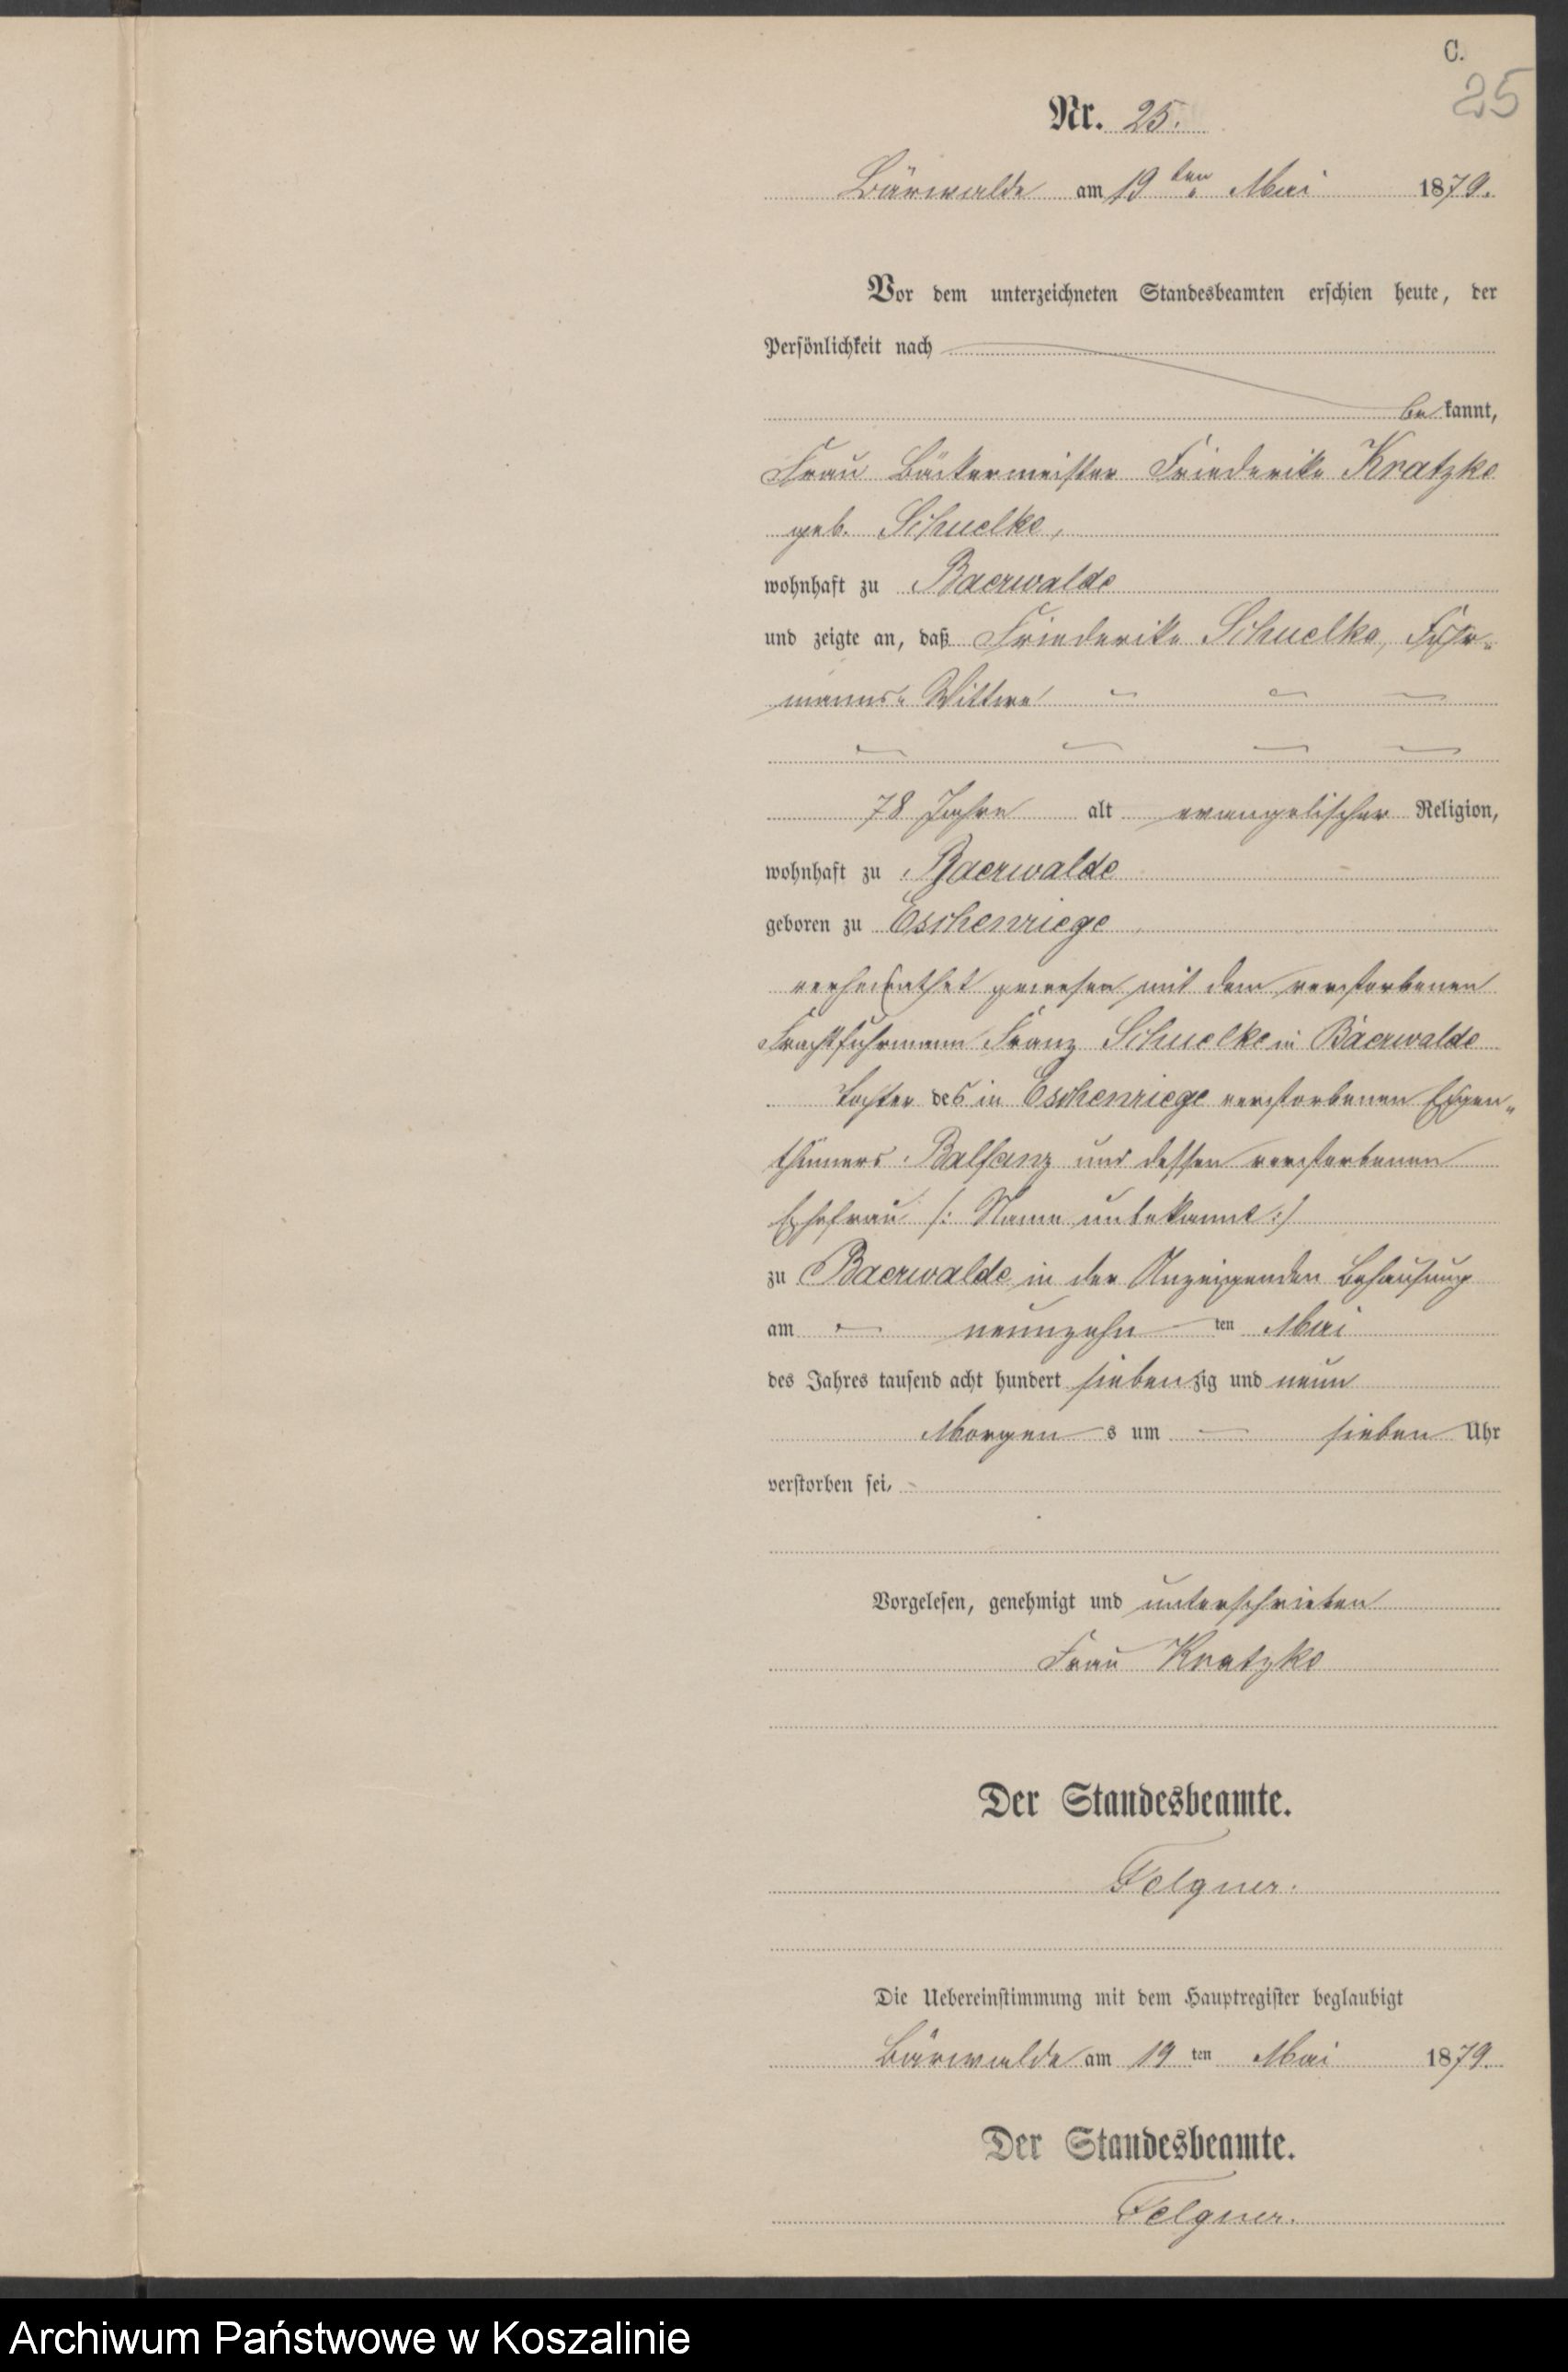 C.
25
Nr. 25.
Bärwalde am 19ten Mai 1879.
Vor dem unterzeichneten Standesbeamten erschien heute, der
Persönlichkeit nach
bekannt,
Frau Bäckermeister Friederike Kratzke
geb. Schuelke,
wohnhaft zu Baerwalde
und zeigte an, daß Friederike Schuelke, Fuhr-
manns-Wittwe
78 Jahre alt evangelischer Religion,
wohnhaft zu Baerwalde
geboren zu Eschenriege
verheirathet gewesen mit dem verstorbenen
Frachtfuhrmann Franz Schuelke in Baerwalde
Tochter des in Eschenriege verstorbenen Eigen-
thümers Balfanz und dessen verstorbenen
Ehefrau /: Name unbekannt :/
zu Baerwalde in der Anzeigenden Behausung
am neunzehn ten Mai
des Jahres tausend acht hundert siebenzig und neun
Morgens um sieben Uhr
verstorben sei.
Vorgelesen, genehmigt und unterschrieben
Frau Kratzke
Der Standesbeamte.
Felgner.
Die Uebereinstimmung mit dem Hauptregister beglaubigt
Bärwalde am 19ten Mai 1879.
Der Standesbeamte.
Felgner.
Archiwum Państwowe w Koszalinie